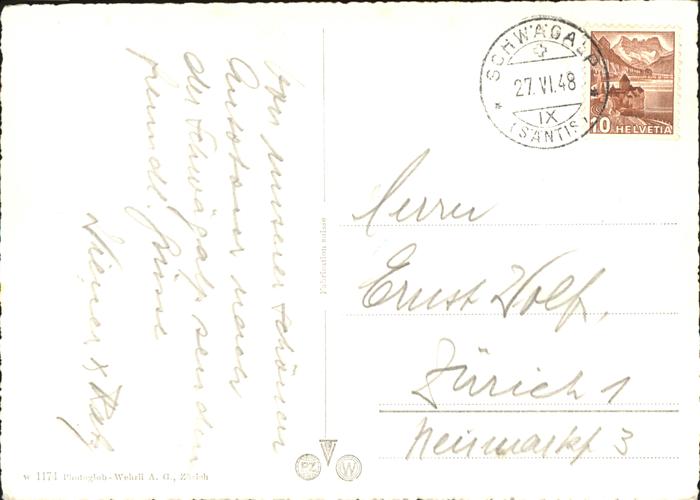 Von unserer schönen
Autotour nach
der Schwägalp senden
freundl. Grüsse
SCHWÄGALP
27.VI.48
IX
(SÄNTIS)
10 HELVETIA
Herrn
Ernst Wolf,
Zürich 1
Neumarkt 3
Fabrication suisse
W 1171 Photoglob-Wehrli A. G., Zürich
PZ W